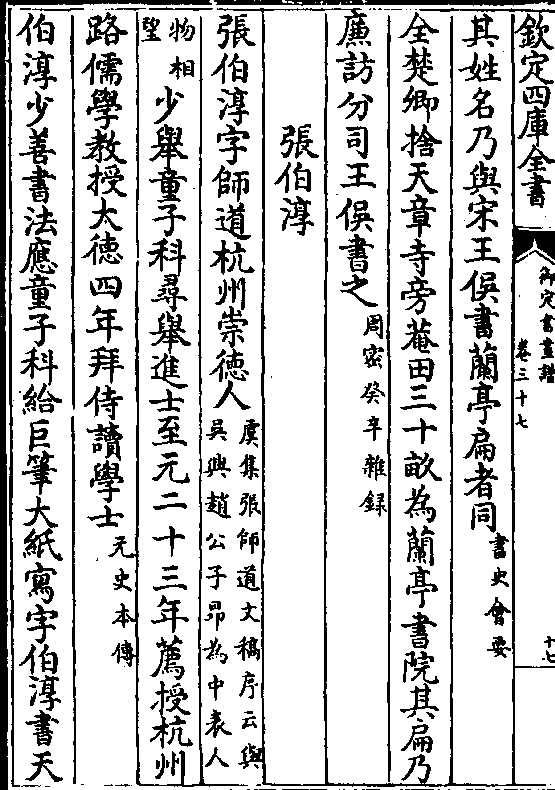 欽定四庫全書
御定書畫譜
卷三十七
十七
其姓名乃與宋王俁書蘭亭扁者同書史會要
全楚卿捨天章寺旁菴田三十畝為蘭亭書院其扁乃
廉訪分司王俁書之周密癸辛雜録
張伯淳
張伯淳字師道杭州崇德人虞集張師道文稿序云與
吳興趙公子昻為中表人
物相
望少舉童子科尋舉進士至元二十三年薦授杭州
路儒學教授大徳四年拜侍讀學士元史本傳
伯淳少善書法應童子科給巨筆大紙寫字伯淳書天